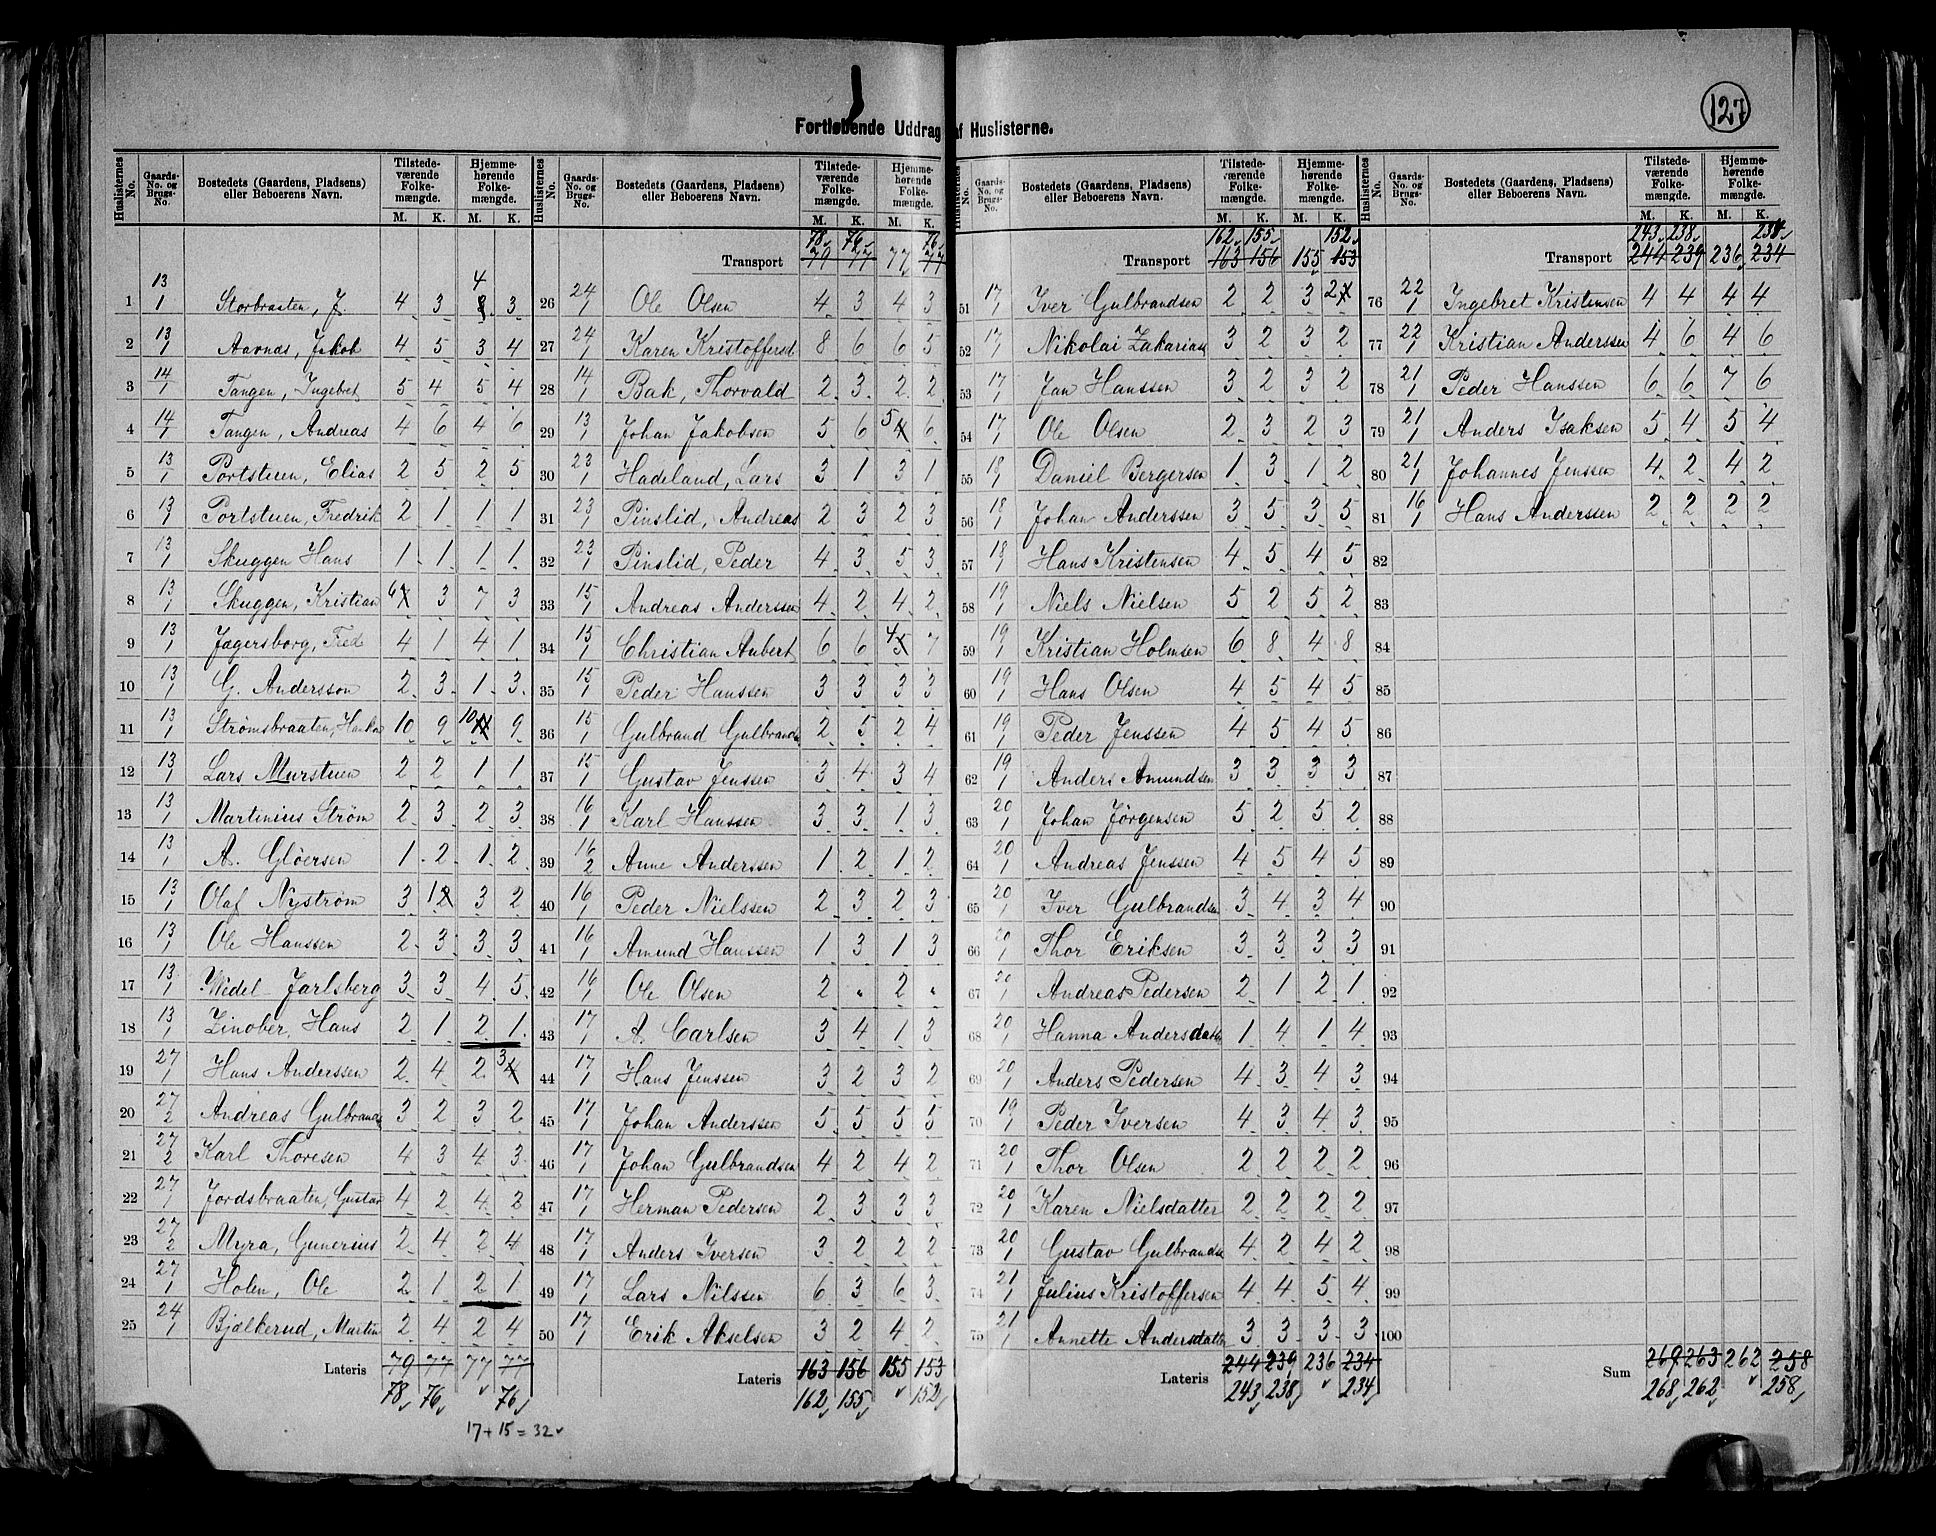 127
Fortløbende Uddrag af Huslisterne.
Huslisternes No. | Gaards-No. og Brugs-No. | Bostedets (Gaardens, Pladsens) eller Beboerens Navn. | Tilstedeværende Folkemængde. M. K. | Hjemmehørende Folkemængde. M. K.
1 13/1 Storbraaten, J. 4 3 4 3
2 13/1 Aavnæs, Jakob 4 5 3 4
3 14/1 Tangen, Ingebret 5 4 5 4
4 14/1 Tangen, Andreas 4 6 4 6
5 13/1 Portstuen, Elias 2 5 2 5
6 13/1 Portstuen, Fredrik 2 1 1 1
7 13/1 Skuggen Hans 1 1 1 1
8 13/1 Skuggen, Kristian 6 3 7 3
9 13/1 Jægersborg, Fred 4 1 4 1
10 13/1 G. Andersson 2 3 1 3
11 13/1 Strømsbraaten, 10 9 10 9
12 13/1 Lars Murstuen 2 2 1 1
13 13/1 Martinius Strøm 2 3 2 3
14 13/1 A. Gløersen 1 2 1 2
15 13/1 Olaf Nystrøm 3 1 3 2
16 13/1 Ole Hanssen 2 3 3 3
17 13/1 Wedel Jarlsberg 3 3 4 5
18 13/1 Zinober, Hans 2 1 2 1
19 27/1 Hans Anderssen 2 4 2 3
20 27/2 Andreas Gulbrands 3 2 3 2
21 27/2 Karl Thoresen 4 3 4 3
22 27/1 Jordsbraaten, Gustav 4 2 4 2
23 27/2 Myra, Gunerius 2 4 2 4
24 27/1 Holen, Ole 2 1 2 1
25 24/1 Bjælkerud, Martin 2 4 2 4
Lateris 79 77 77 77
78 76 76
17 + 15 = 32
Huslisternes No. | Gaards-No. og Brugs-No. | Bostedets (Gaardens, Pladsens) eller Beboerens Navn. | Tilstedeværende Folkemængde. M. K. | Hjemmehørende Folkemængde. M. K.
78 76 76
Transport 79 77 77 77
26 24/1 Ole Olsen 4 3 4 3
27 24/1 Karen Kristoffersd 8 6 6 5
28 14/1 Bak, Thorvald 2 3 2 2
29 13/1 Johan Jakobsen 5 6 5 6
30 23/1 Hadeland, Lars 3 1 3 1
31 23/1 Pinslid, Andreas 2 3 2 3
32 23/1 Pinslid, Peder 4 3 5 3
33 15/1 Andreas Anderssen 4 2 4 2
34 15/1 Christian Aubert 6 6 4 7
35 15/1 Peder Hanssen 3 3 3 3
36 15/1 Gulbrand Gulbrands 2 5 2 4
37 15/1 Gustav Jenssen 3 4 3 4
38 16/1 Karl Hanssen 3 3 1 3
39 16/2 Anne Anderssen 1 2 1 2
40 16/1 Peder Nielssen 2 3 2 3
41 16/1 Amund Hanssen 1 3 1 3
42 16/1 Ole Olsen 2 " 2 "
43 17/1 A. Carlsen 3 4 1 3
44 17/1 Hans Jenssen 3 2 3 2
45 17/1 Johan Anderssen 5 5 5 5
46 17/1 Johan Gulbrandsen 4 2 4 2
47 17/1 Herman Pedersen 2 3 3 3
48 17/1 Anders Iversen 3 2 2 2
49 17/1 Lars Nilssen 6 3 6 3
50 17/1 Erik Akselsen 3 2 4 2
Lateris 163 156 155 153
162 155 152
Huslisternes No. | Gaards-No. og Brugs-No. | Bostedets (Gaardens, Pladsens) eller Beboerens Navn. | Tilstedeværende Folkemængde. M. K. | Hjemmehørende Folkemængde. M. K.
162 155 152
Transport 163 156 155 153
51 17/1 Iver Gulbrandsen 2 2 3 2
52 17/1 Nikolai Zakarias 3 2 3 2
53 17/1 Jan Hanssen 3 2 3 2
54 17/1 Ole Olsen 2 3 2 3
55 18/1 Daniel Bergersen 1 3 1 2
56 18/1 Johan Anderssen 3 5 3 5
57 18/1 Hans Kristensen 4 5 4 5
58 19/1 Niels Nielsen 5 2 5 2
59 19/1 Kristian Holmsen 6 8 4 8
60 19/1 Hans Olsen 4 5 4 5
61 19/1 Peder Jenssen 4 5 4 5
62 19/1 Anders Amundsen 3 3 3 3
63 20/1 Johan Jørgensen 5 2 5 2
64 20/1 Andreas Jenssen 4 5 4 5
65 20/1 Iver Gulbrandsen 3 4 3 4
66 20/1 Thor Eriksen 3 3 3 3
67 20/1 Andreas Pedersen 2 1 2 1
68 20/1 Hanna Andersdatter 1 4 1 4
69 20/1 Anders Pedersen 4 3 4 3
70 19/1 Peder Iversen 4 3 4 3
71 20/1 Thor Olsen 2 2 2 2
72 20/1 Karen Nielsdatter 2 2 2 2
73 20/1 Gustav Gulbrandsen 4 2 4 2
74 21/1 Julius Kristoffersen 4 4 5 4
75 21/1 Annette Andersdatter 3 3 3 3
Lateris 244 239 236 234
243 238 234
Huslisternes No. | Gaards-No. og Brugs-No. | Bostedets (Gaardens, Pladsens) eller Beboerens Navn. | Tilstedeværende Folkemængde. M. K. | Hjemmehørende Folkemængde. M. K.
243 238
Transport 244 239 236 234
76 22/1 Ingebret Kristensen 4 4 4 4
77 22/1 Kristian Anderssen 4 6 4 6
78 21/1 Peder Hanssen 6 6 7 6
79 21/1 Anders Isaksen 5 4 5 4
80 21/1 Johannes Jenssen 4 2 4 2
81 16/1 Hans Anderssen 2 2 2 2
82
83
84
85
86
87
88
89
90
91
92
93
94
95
96
97
98
99
100
Sum 269 263 262 258
268 262 258